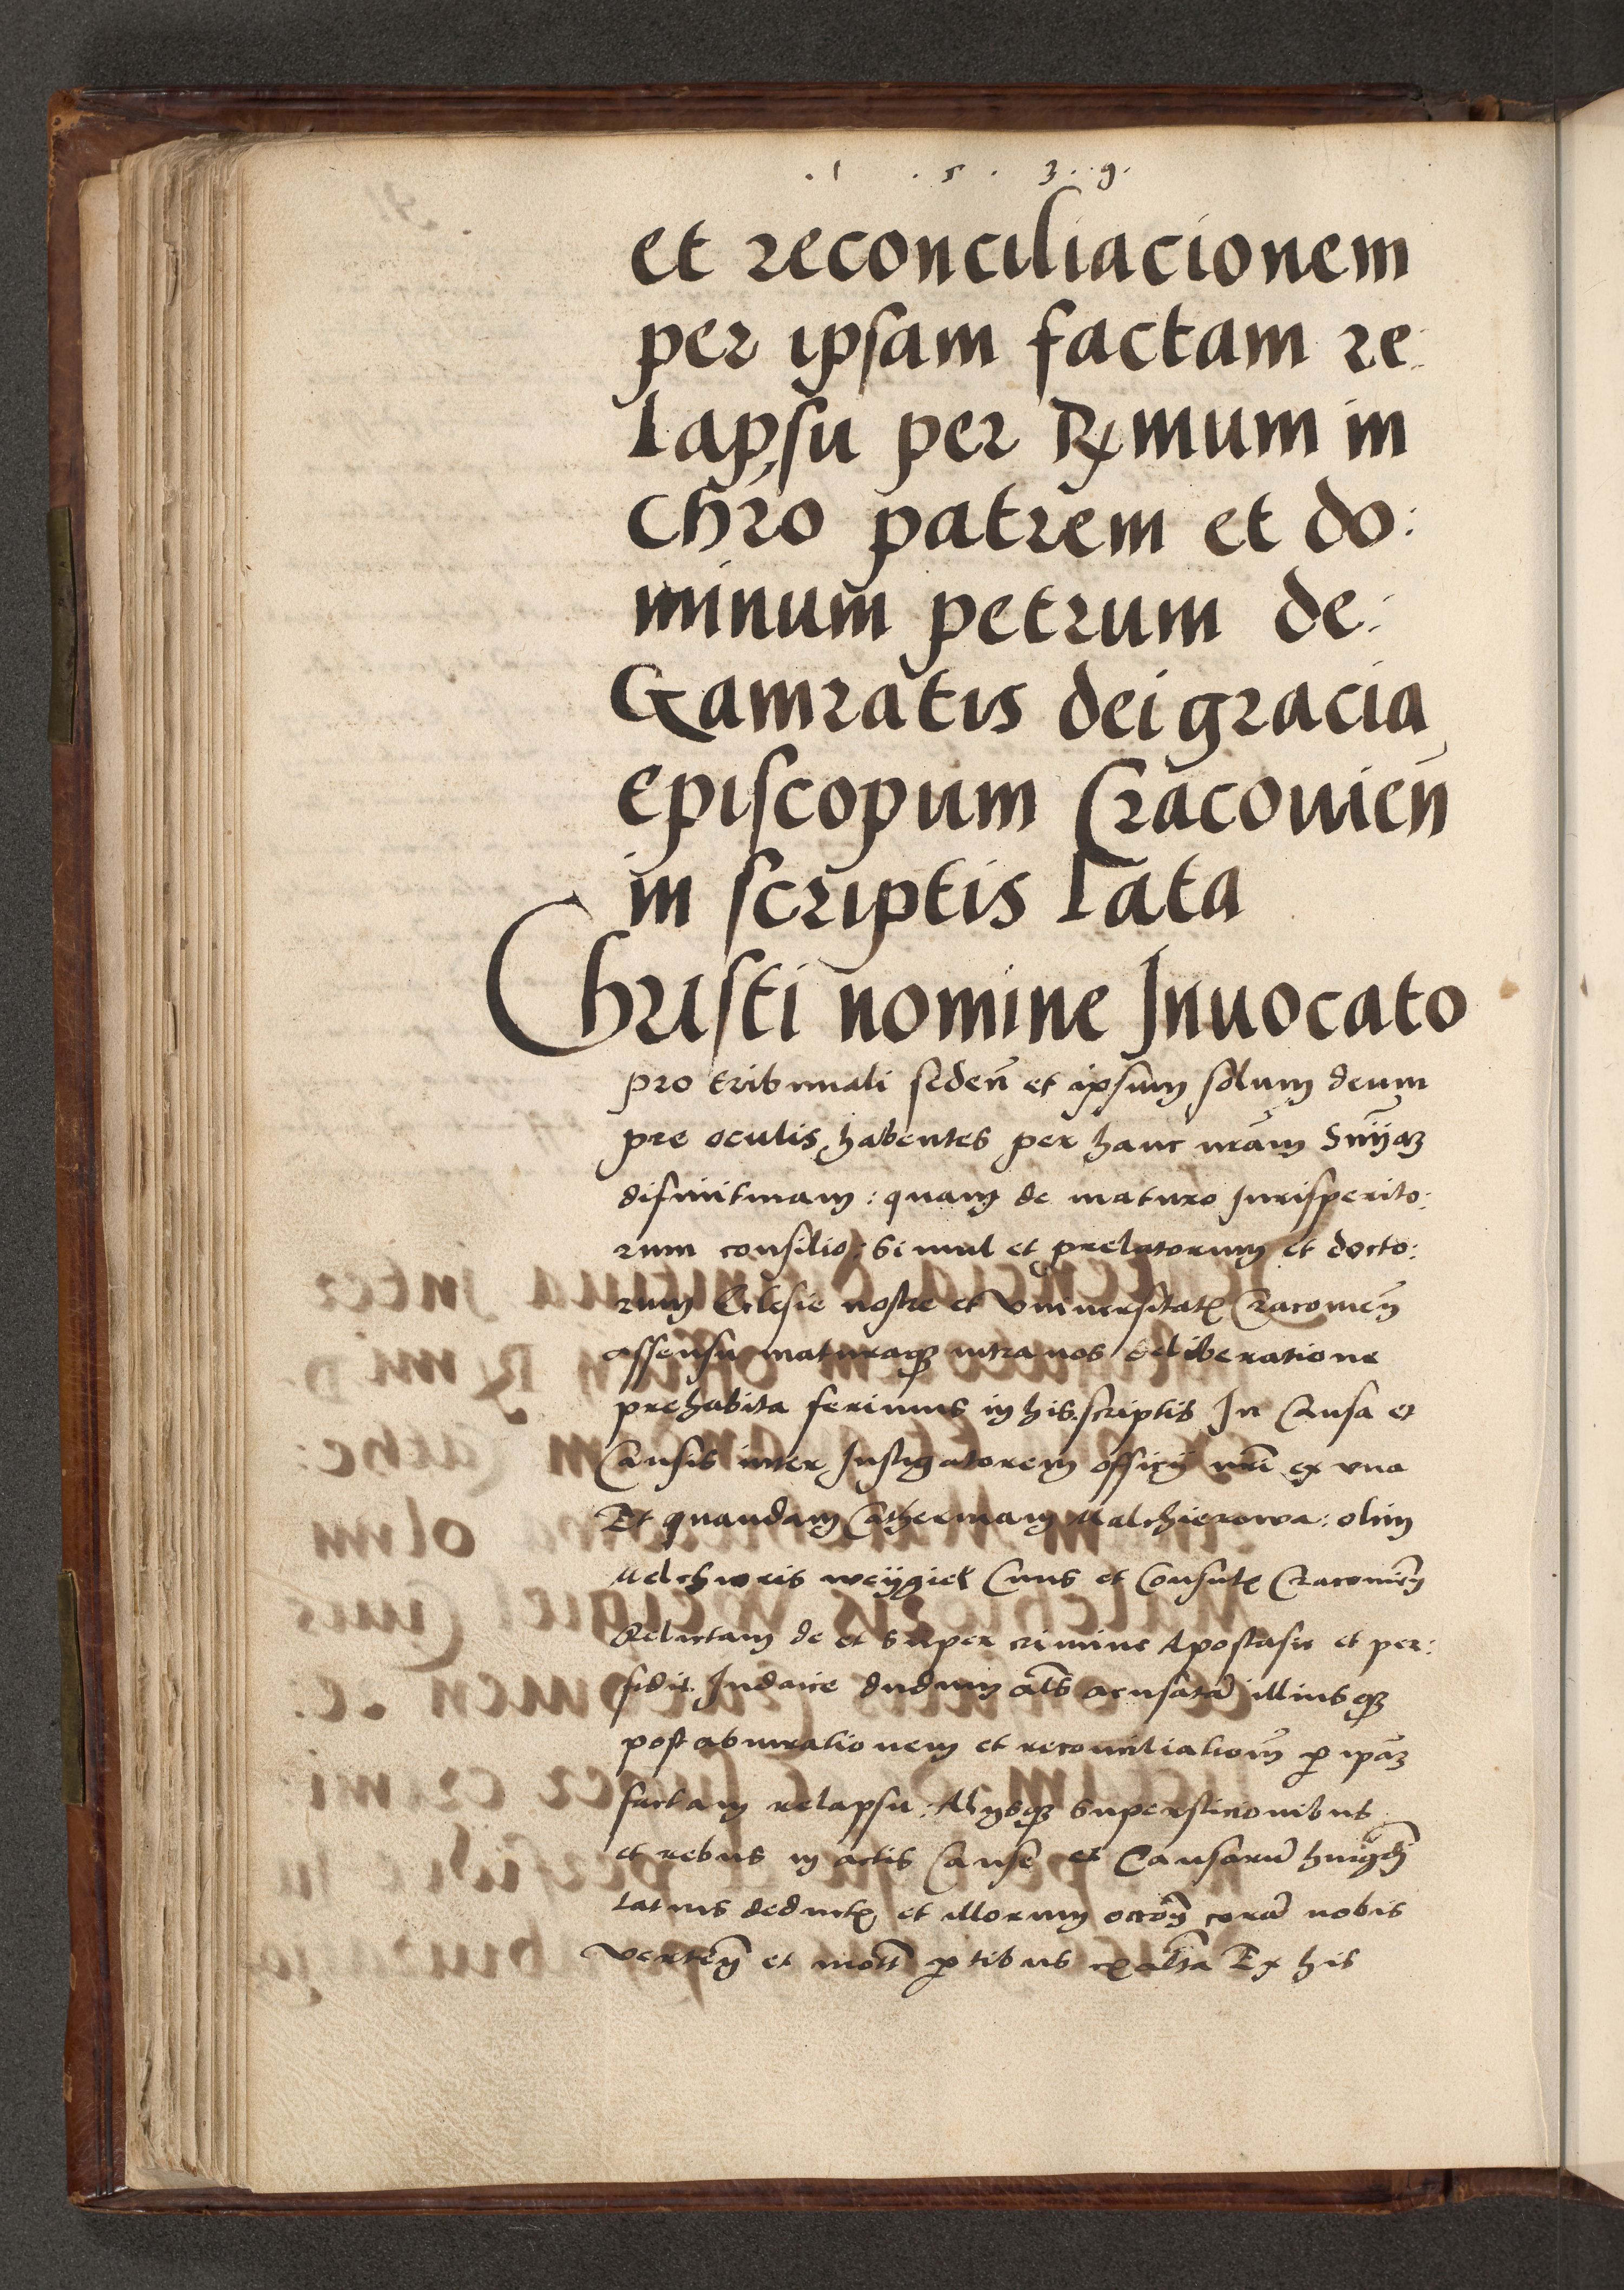 . 1 . 5 . 3 . 9 .
et reconciliacionem
per ipsam factam re
lapsu per Rmum in
Chro patrem et do:
minum petrum de:
Gamratis dei gracia
episcopum Cracouien
in scriptis lata
Christi nomine Jnuocato
pro tribunali seden et ipsum solum deum
pre oculis habentes per hanc nram Sniam
difinitiuam: quam de maturo Jurisperito:
rum consilio: Simul et prelatorum et docto:
rum Eclesie nostre et Vniuersitatis Cracouien
assensu maturaque intra nos deliberatione
prehabita ferimus in his scriptis In Causa et
Causis inter Instigatorem officij nri ex vna
Et quandam Catherinam Malchierowa: olim
Melchioris weijgiel Ciuis et Consulis Cracouien
Relictam de et super crimine Apostasie et per:
fidie Judaice dudum als acusatam illiusque
post abiurationem et reconciliationem per ipsam
factam relapsu: Alijsque superstitionibus
et rebus in actis Cause et Causarum huiusmodi
latius deductis et illorum occasione coram nobis
verten et mott partibus ex altera Ex his